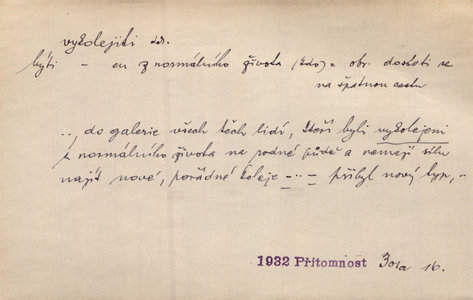 vykolejiti dok.
býti – en z normálního života (kdo) = obr. dostati se
na špatnou cestu
„do galerie všech těch lidí, kteří byli vykolejeni
z normálního života na rodné půdě a nemají sílu
najíti nové, pořádné koleje – ·· – přibyl nový typ, „
1932 Přítomnost 302a 16.